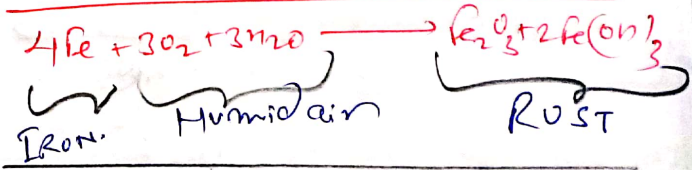 4Fe + 3O₂ + 3H₂O ⟶ Fe₂O₃ + 2Fe(OH)₃
IRON. Humid air RUST